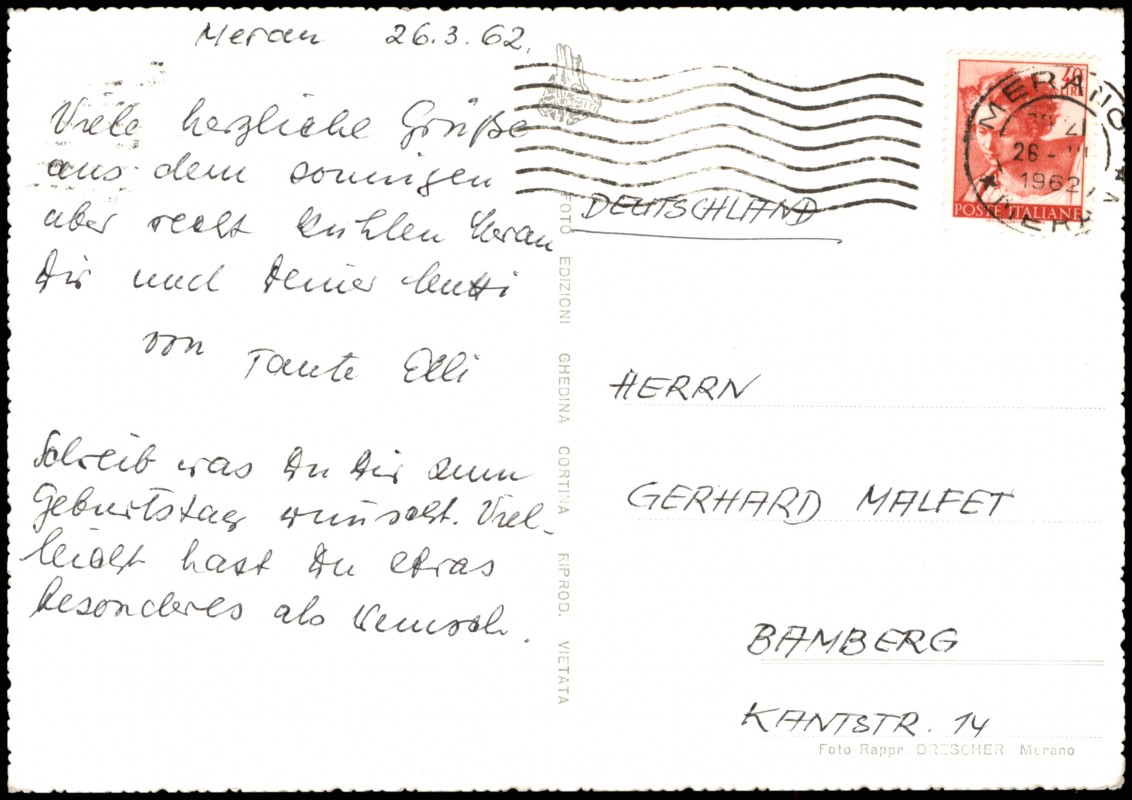 Meran 26.3.62.
Viele herzliche Grüße
aus dem sonnigen
aber recht kühlen Meran
Dir und Deiner Mutti
von Tante Elli
Schreib was Du Dir zum
Geburtstag wünscht. Viel-
leicht hast Du etwas
besonderes als Wunsch.
FOTO EDIZIONI GHEDINA CORTINA RIPROD. VIETATA
40
LIRE
POSTE ITALIANE
MERANO
26 - III
1962
DEUTSCHLAND
HERRN
GERHARD MALFET
BAMBERG
KANTSTR. 14
Foto Rappr. DRESCHER Merano